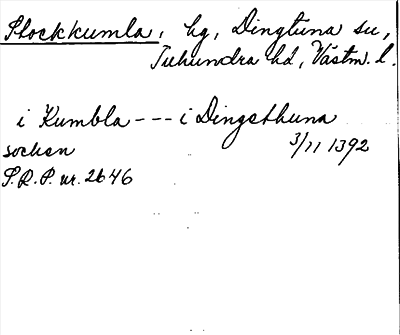 Stockkumla, hg, Dingtuna sn,
Tuhundra hd, Västm. l.
i Kumbla --- i Dingethuna
socken 3/11 1392
S.R.P. nr. 2646